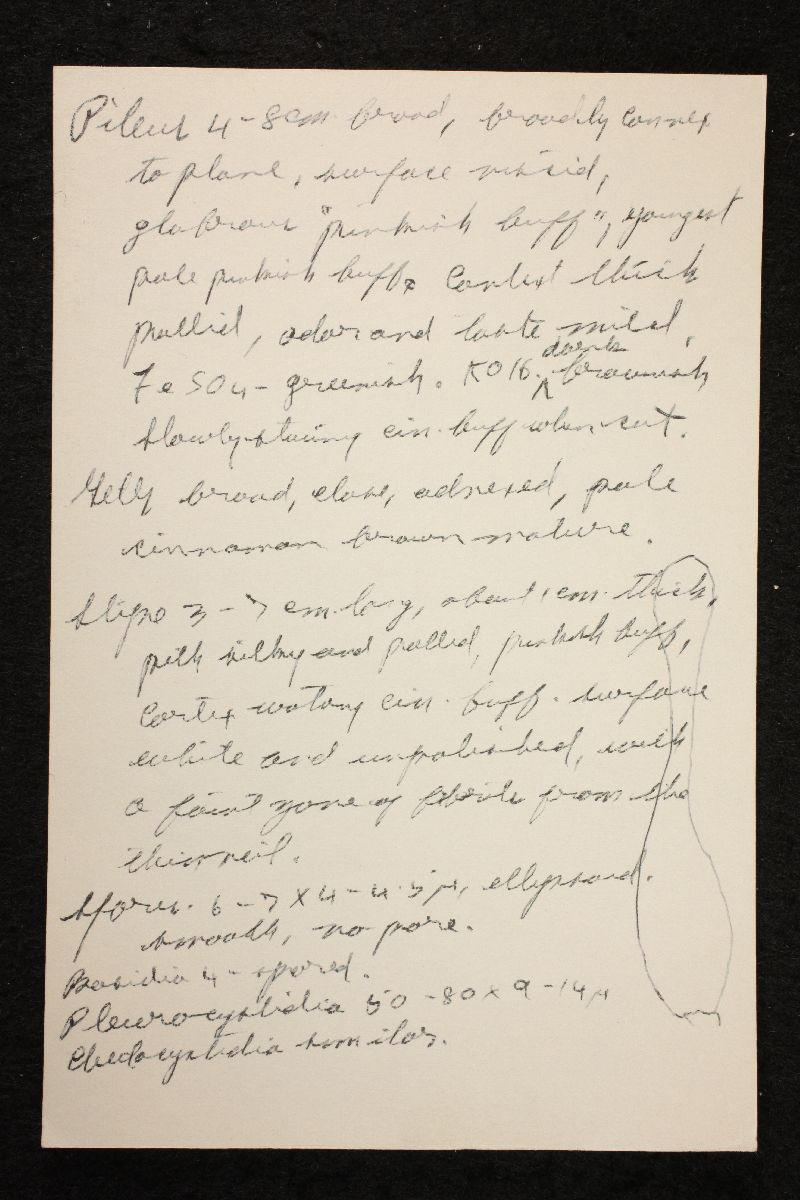 Pileus 4-8cm broad, broadly convex
to plane, surface viscid,
glabrous "pinkish buff", youngest
pale pinkish buff. Context thick
pallid, odor and taste mild.
FeSO4- greenish. KOH. dark brownish
slowly staining cin. buff when cut.
Gills broad, close, adnexed, pale
cinnamon brown mature.
Stipe 3-7 cm long, about 1 cm. thick,
pith silky and pallid, pinkish buff,
cortex watery cin. buff. surface
white and unpolished, with
a faint zone of fibrils from the
thin veil.
Spores. 6-7 X 4-4.5μ, ellipsoid.
smooth, no pore.
Basidia 4-spored.
Pleurocystidia 50-80 x 9-14μ
Cheilocystidia similar.